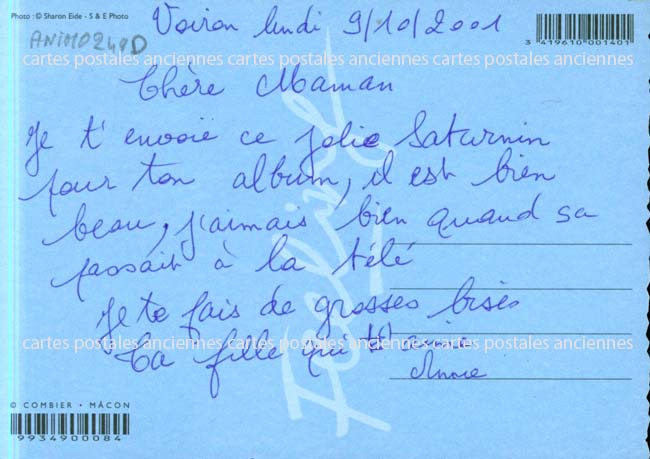 Photo : © Sharon Eide - S & E Photo
ANIM0240D
Voiron lundi 9/10/2001
3 419610 001401
cartes postales anciennes cartes postales anciennes cartes postales anciennes
Chère Maman
Je t'envoie ce jolie Saturnin
pour ton album, il est bien
beau, j'aimais bien quand sa
passait à la télé
Je te fais de grosses bises
cartes postales anciennes cartes postales anciennes cartes postales anciennes
Ta fille qui t'aime
Annie
© COMBIER - MÂCON
9934900084